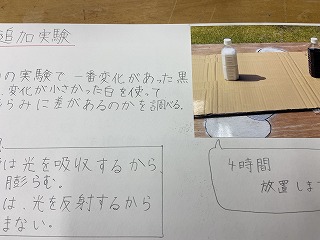 追加実験
の実験で一番変化があった黒
変化が小さかった白を使って
らみに差があるのかを調べる.
は光を吸収するから
膨らむ。
は、光を反射するから
まない。
4時間
放置しま